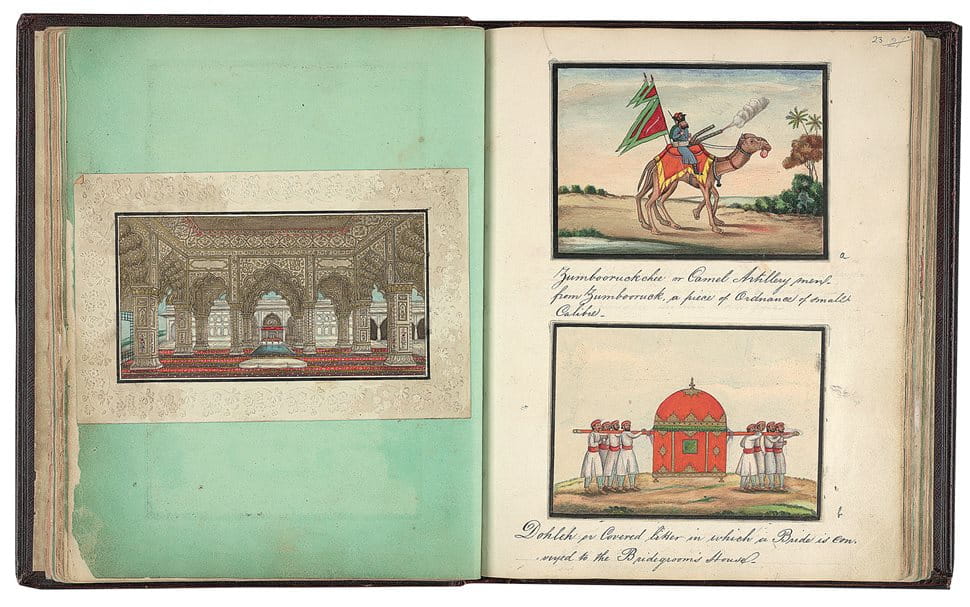 23
a
Zumbooruckchee or Camel Artillery men,
from Zumbooruck, a piece of Ordnance of small
Calibre_
b
Dohleh or Covered litter in which a Bride is con_
_veyed to the Bridegroom's House_